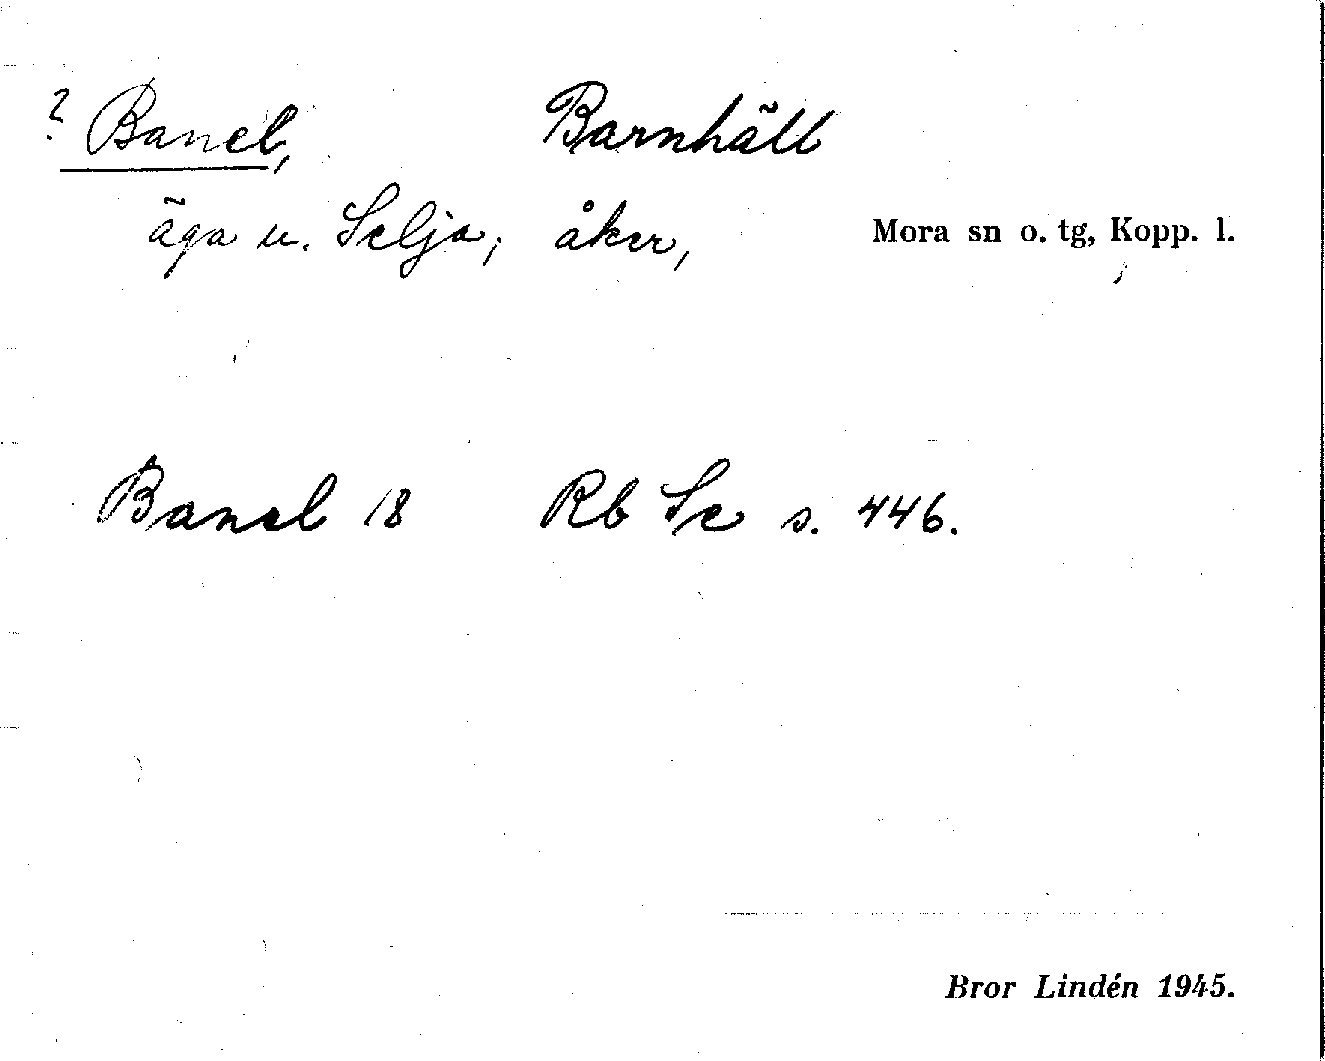 ? Banel, Barnhäll
äga u. Selja, åker, Mora sn o. tg, Kopp. l.
Banel 18 Rb Se s. 446.
Bror Lindén 1945.